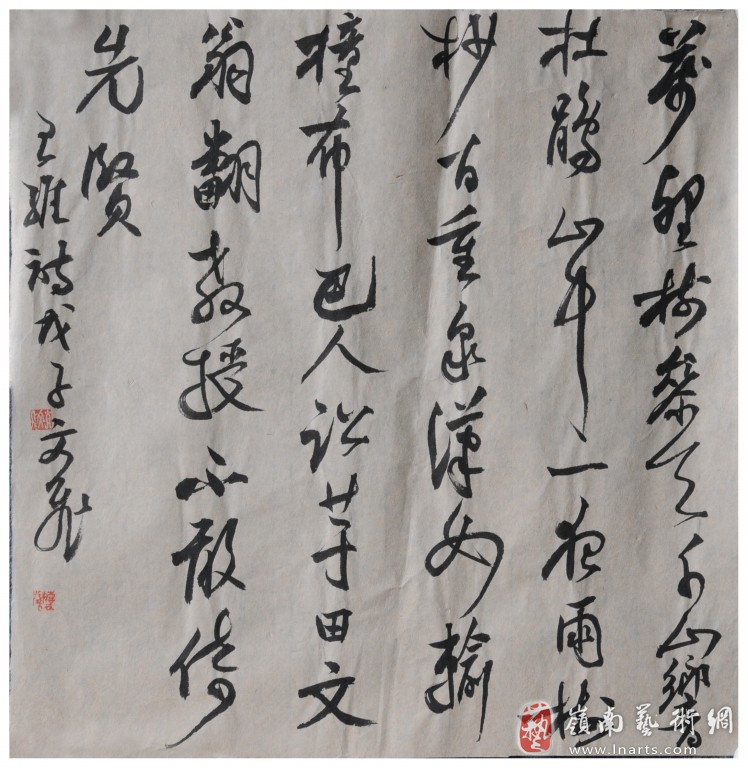 萬壑樹參天千山響
杜鵑山中一夜雨樹
杪百重泉漢女輸
橦布巴人訟芋田文
翁翻教授不敢倚
先賢
王維詩戊子文
嶺南藝術網
www.lnarts.com